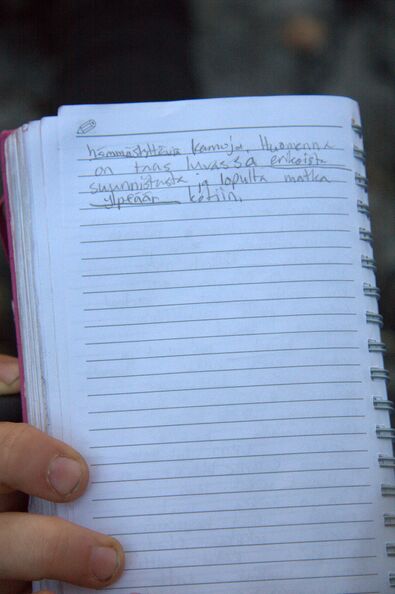 hämmästyttäviä kamoja. Huomenna
on taas luvassa erikoista
suunnistusta ja lopulta matka
ylpeään kotiin.